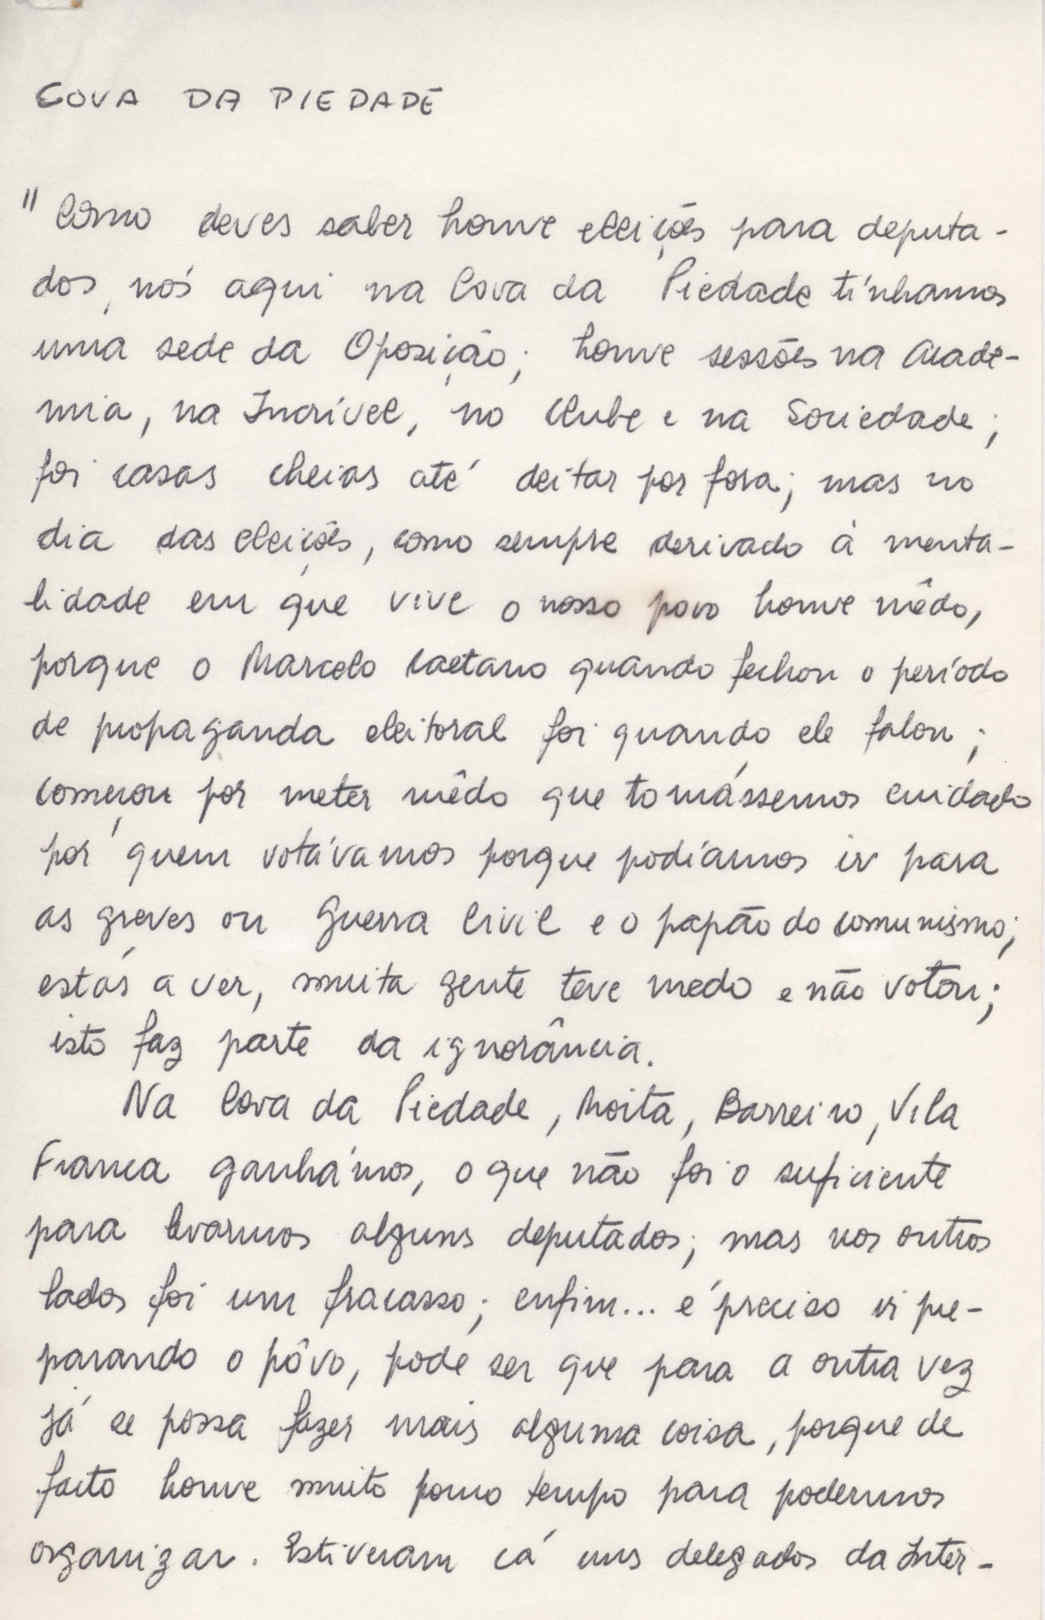 COVA DA PIEDADE
" Como deves saber houve eleições para deputa-
dos, nós aqui na Cova da Piedade tínhamos
uma sede da Oposição; houve sessões na Acade-
mia, na Incrível, no Clube e na Sociedade;
foi casas cheias até deitar por fora; mas no
dia das eleições, como sempre derivado à menta-
lidade em que vive o nosso povo houve mêdo,
porque o Marcelo Caetano quando fechou o período
de propaganda eleitoral foi quando ele falou;
começou por meter mêdo que tomássemos cuidado
por quem votávamos porque podíamos ir para
as greves ou Guerra Civil e o papão do comunismo;
estás a ver, muita gente teve medo e não votou;
isto faz parte da ignorância.
Na Cova da Piedade, Moita, Barreiro, Vila
Franca ganhámos, o que não foi o suficiente
para levarmos alguns deputados; mas nos outros
lados foi um fracasso; enfim... é preciso ir pre-
parando o pôvo, pode ser que para a outra vez
já se possa fazer mais alguma coisa, porque de
facto houve muito pouco tempo para podermos
organizar. Estiveram cá uns delegados da Inter-